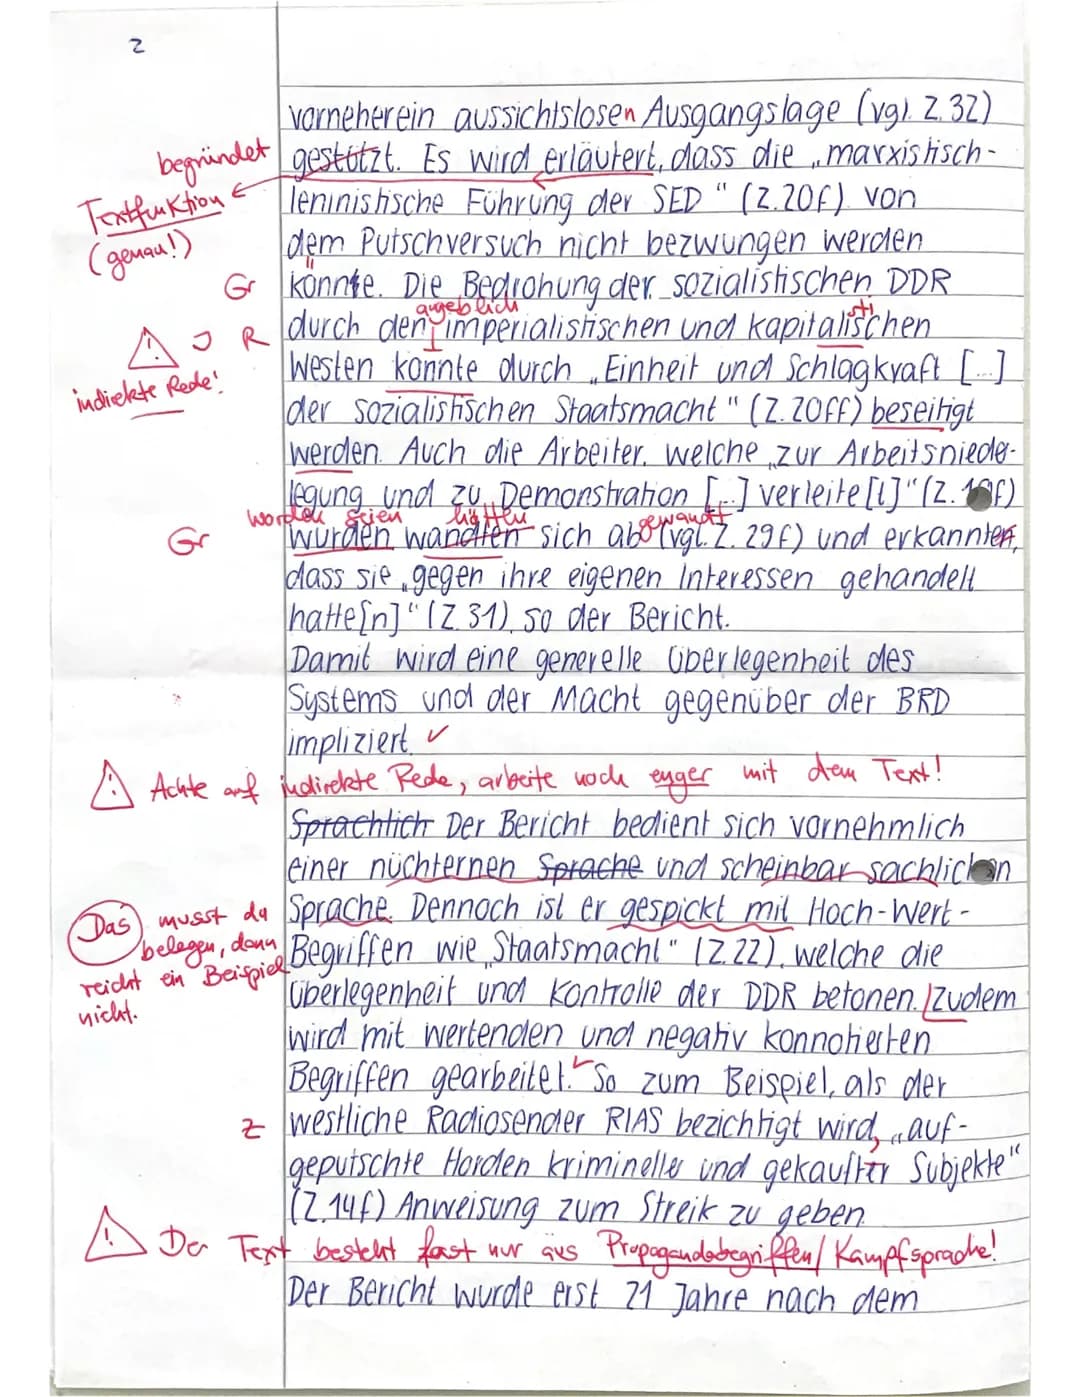 2
vorneherein aussichtslosen Ausgangslage (vgl. Z. 32)
begründet
gestützt. Es wird erläutert, dass die „marxistisch-
Textfunktion
(genau!)
leninistische Führung der SED" (Z.20f). von
dem Putschversuch nicht bezwungen werden
Gr
könnte. Die Bedrohung der sozialistischen DDR
angeblich
sti
J R
durch den imperialistischen und kapitalischen
indirekte Rede!
Westen könnte durch „Einheit und Schlagkraft [...]
der sozialistischen Staatsmacht" (Z.20ff) beseitigt
werden. Auch die Arbeiter, welche „zur Arbeitsnieder-
legung und zu Demonstration [...] verleite[t]" (Z. f)
worden seien hätten gewandt
Gr
wurden wandten sich ab (vgl. Z. 29f) und erkannten,
dass sie „gegen ihre eigenen Interessen gehandelt
hatte[n]" (Z.31), so der Bericht.
Damit wird eine generelle Überlegenheit des
Systems und der Macht gegenüber der BRD
impliziert. ✓
Achte auf indirekte Rede, arbeite noch enger mit dem Text!
Sprachlich Der Bericht bedient sich vornehmlich
einer nüchternen Sprache und scheinbar sachlichen
Das musst du
belegen, dann
reicht ein Beispiel
nicht.
Sprache. Dennoch ist er gespickt mit Hoch-Wert-
Begriffen wie „Staatsmacht" (Z.22), welche die
Überlegenheit und Kontrolle der DDR betonen. Zudem
wird mit wertenden und negativ konnotierten
Begriffen gearbeitet. ✓ So zum Beispiel, als der
Z
westliche Radiosender RIAS bezichtigt wird, „auf-
geputschte Horden krimineller und gekaufter Subjekte"
(Z.14f) Anweisung zum Streik zu geben.
Der Text besteht fast nur aus Propagandabegriffen/Kampfsprache!
Der Bericht wurde erst 21 Jahre nach dem